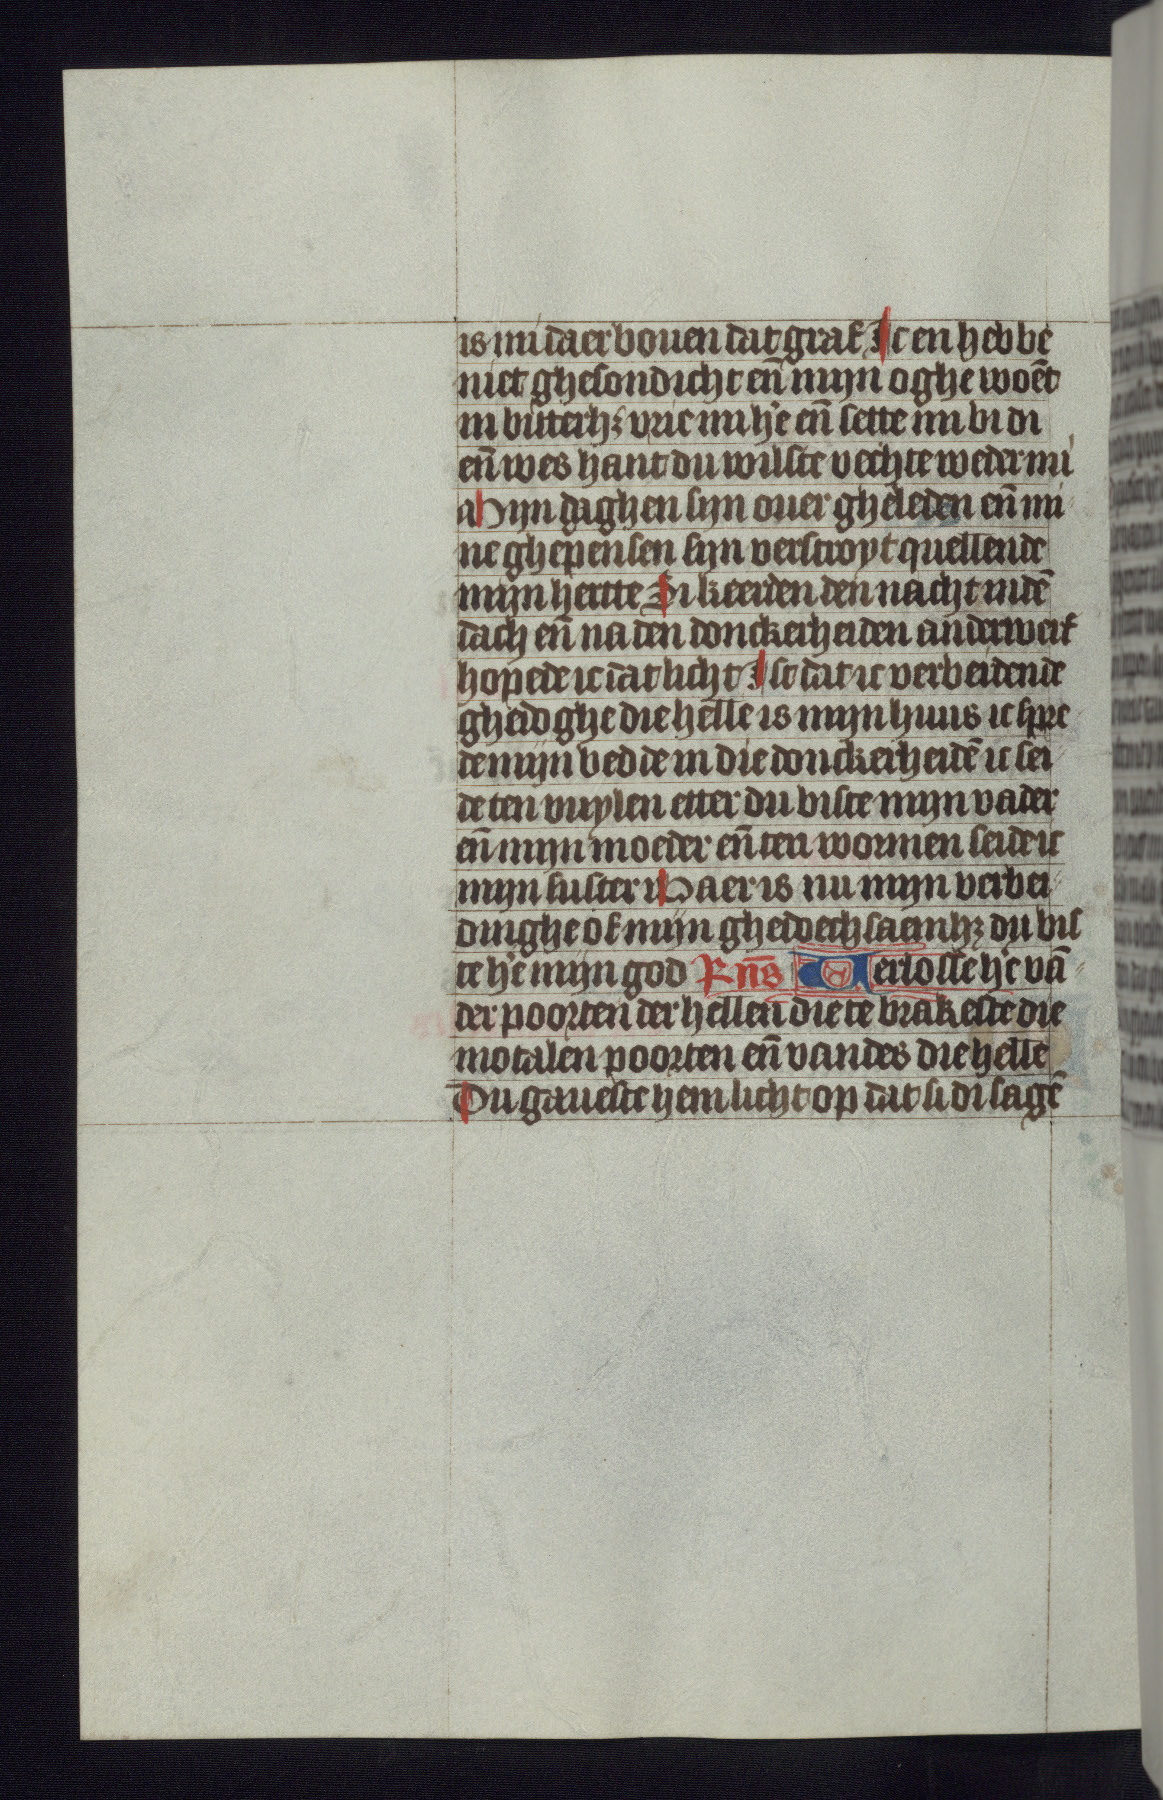 is mi daer bouen dat graf Ic en hebbe
niet ghesondicht en̄ mijn oghe woēt
in bitterhʒ vrie mi hʼe en̄ sette mi bi di
en̄ wes hant du wilste vechte weder mi
Mijn daghen sijn ouer gheleden en̄ mi
ne ghepensen sijn verstroyt quellende
mijn hertte Si keerden den nacht in dē
dach en̄ na den donckerheiden anderwerf
hopede ic dat licht Ist dat ic verbeidende
gheidoghe die helle is mijn huus ic spre
de mijn bedde in die donckerheidē ic sei
de ten vuylen etter du biste mijn vader
en̄ mijn moeder en̄ ten wormen seide ic
mijn suster Waer is nu mijn verbei
dinghe of mijn ghedoechsaemhʒ du bis
te hʼe mijn god Rn̄s Verlosse hʼe vā
der poorten der hellen die te brakeste die
motalen poorten en̄ vandes die helle
Du gaueste hem licht op dat si di sagē